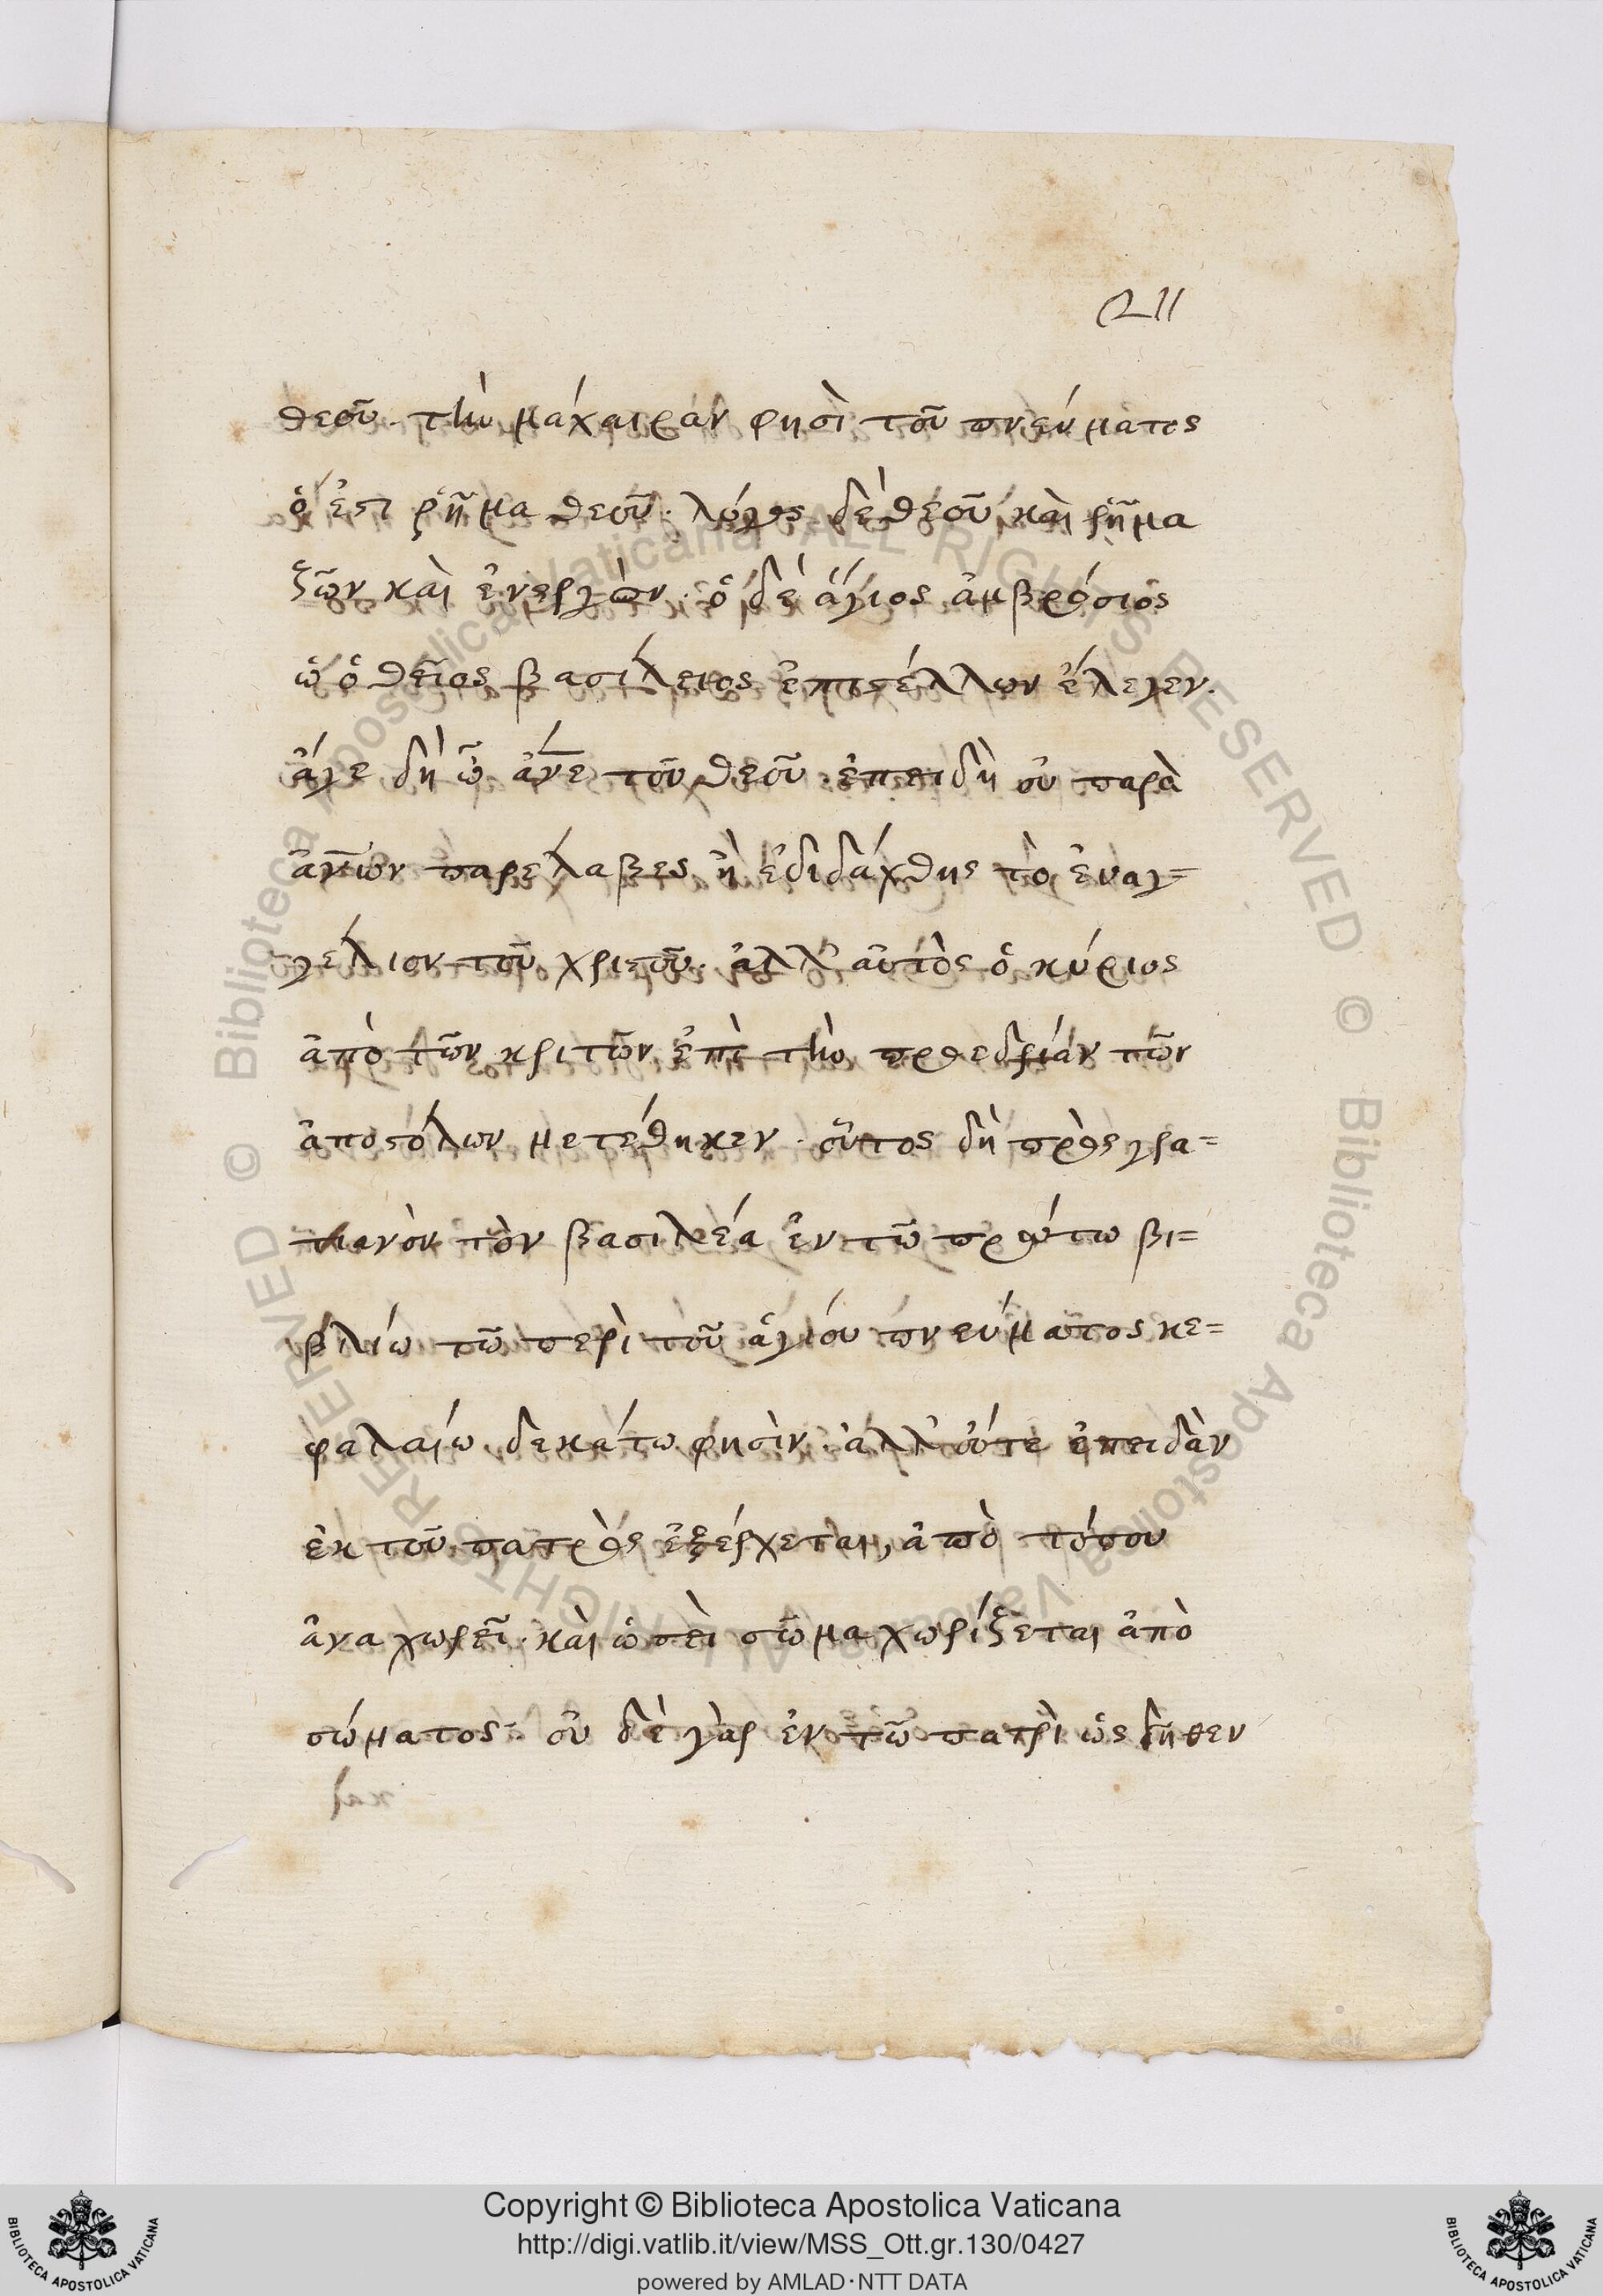 211
θεοῦ. τὴν μάχαιραν φησὶ τοῦ πνεύματος
ὅ ἐστι ῥῆμα θεοῦ. λόγος δὲ θεοῦ καὶ ῥῆμα
ζῶν καὶ ἐνεργῶν. ὁ δὲ ἅγιος ἀμβρόσιος
ὧ ὁ θεῖος βασίλειος ἐπιστέλλων ἔλεγεν.
ἄγε δὴ ὦ ἄνε τοῦ θεοῦ ἐπειδὴ οὐ παρὰ
ἀνων παρέλαβες ἢ ἐδιδάχθης τὸ εὐαγ=
γέλιον τοῦ χριστοῦ. ἀλλ' αὐτὸς ὁ κύριος
ἀπὸ τῶν κριτῶν ἐπὶ τὴν προεδρίαν τῶν
ἀποστόλων μετέθηκεν. οὗτος δὴ πρὸς γρα=
τιανὸν τὸν βασιλέα ἐν τῶ πρώτω βι=
βλίω τῶ περὶ τοῦ ἁγίου πνεύματος κε=
φαλαίω δεκάτω φησὶν. ἀλλ' οὔτε ἐπειδὰν
ἐκ τοῦ πατρὸς ἐξέρχεται, ἀπὸ τόπου
ἀναχωρεῖ. καὶ ὡσεὶ σῶμα χωρίζεται ἀπὸ
σώματος. οὐ δὲ γὰρ ἐν τῶ πατρὶ ὡς δῆθεν
Copyright © Biblioteca Apostolica Vaticana
http://digi.vatlib.it/view/MSS_Ott.gr.130/0427
powered by AMLAD·NTT DATA